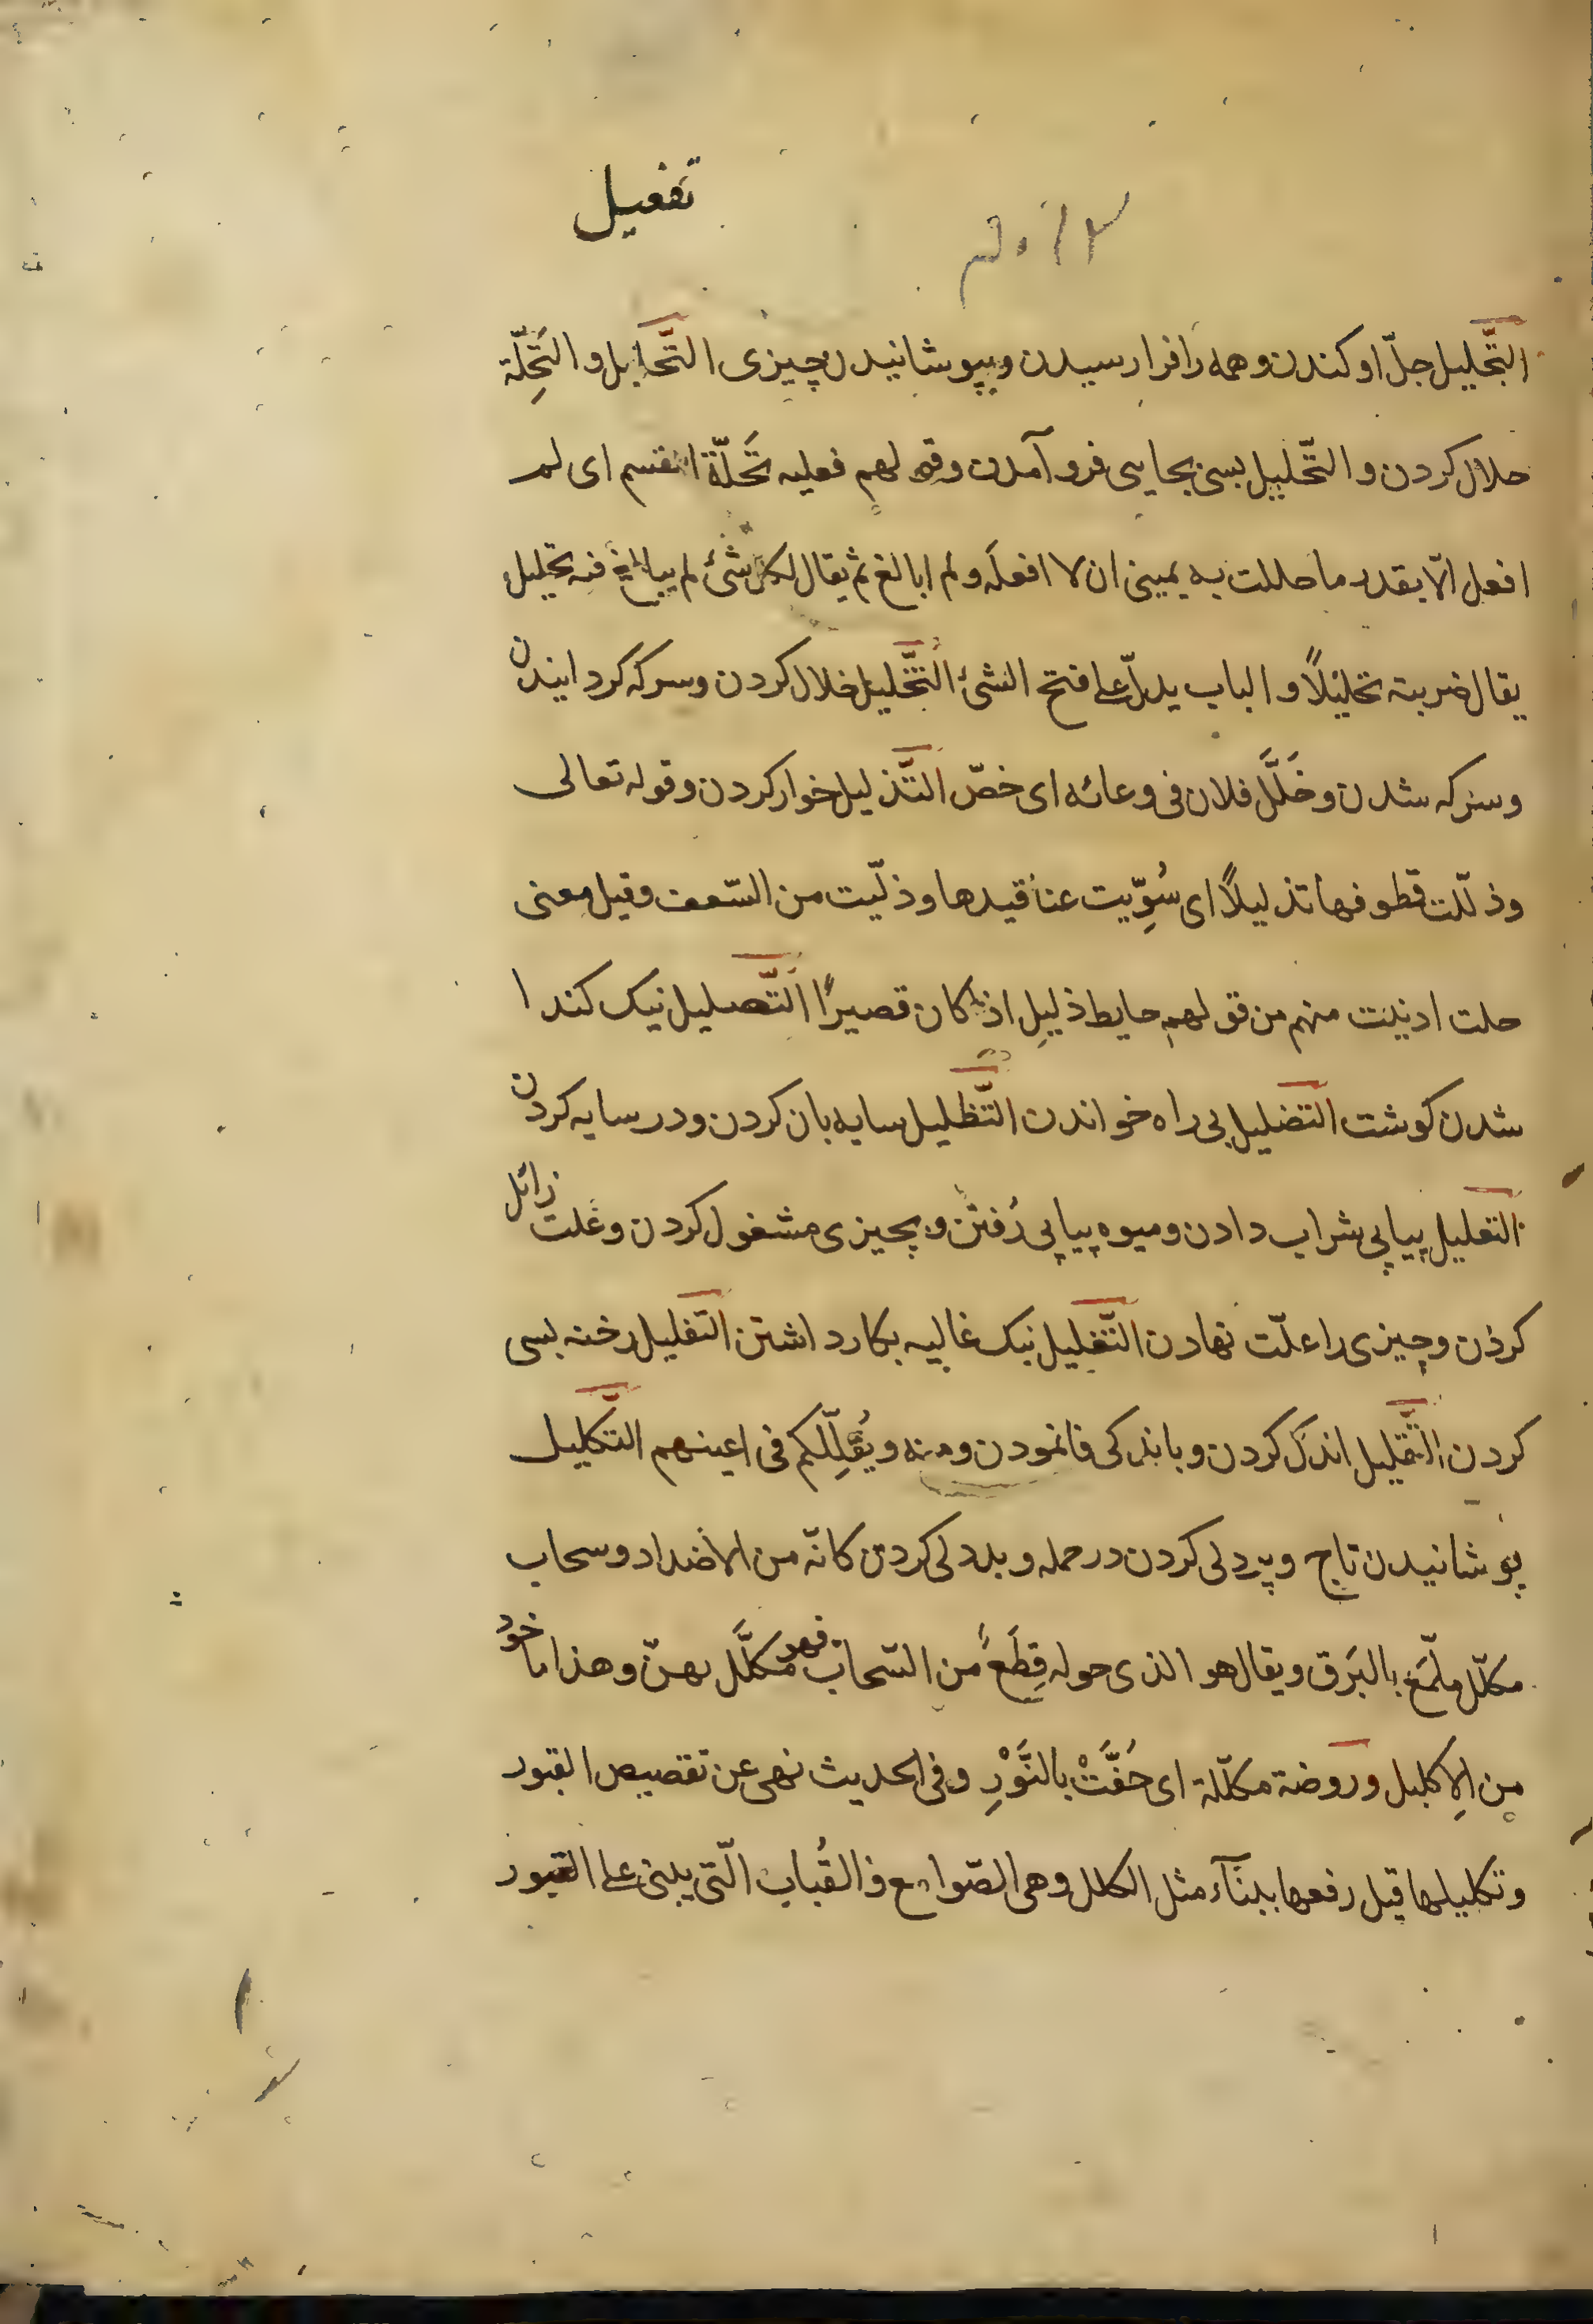 تفعیل
التَّجلیل جلّ اوکندن و همه را فرا رسیدن و بپوشانیدن چیزی التَّحلیل و التَحِلّة
حلال کردن و التّحلیل بسی بجایی فرو آمدن و قولهم فعلیه تَحَلّة القسم ای لم
افعل الّا بقدر ما حللت به یمینی ان لا افعله و لم ابالغ ثم یقال لکل شئ لم یبالغ فیه تحلیل
یقال ضربته تحلیلاً و الباب یدلّ علی فتح الشئ التَّخلیل خلال کردن و سرکه گردانیدن
و سرکه شدن و خَلَّل فلان فی وعائه ای خصّ التَّذلیل خوار کردن و قوله تعالی
و ذلّلت قطوفها تذلیلاً ای سُوِّیت عناقیدها و ذلّیت من السّعف و قیل معنی
حلت ادنیت منهم من قولهم حایط ذلیل اذا کان قصیرًا التَّصلیل نیک کندا
شدن کوشت التضلیل بی راه خواندن التَّظلیل سایه بان کردن و در سایه کردن
التعلیل پیاپی شراب دادن و میوه پیاپی رُفتن و بچیزی مشغول کردن و علت زائل
کردن و چیزی را علّت نهادن التَّغلیل نیک غالیه بکار داشتن التَفلیل رخنه بسی
کردن التَّقلیل اندک کردن و باندکی فا نمودن و منه و یُقَلِّلکم فی اعینهم التَّکلیل
پوشانیدن تاج و پردلی کردن در حمله و بددلی کردن کانّه من الاضداد و سحاب
مکلّل ملمّع بالبَرق و یقال هو الذی حوله قِطَعٌ من السّحاب فهو مکلَّل بهنّ و هذا ماخوذ
من الِاکلیل و روضة مکلّلة ای حُفَّتْ بالنَّوْرِ و فی الحدیث نهی عن تقصیص القبور
و تکلیلها قیل رفعها ببنآء مثل الکلل و هی الصّوامع و القُباب الّتی یبنی علی القبور